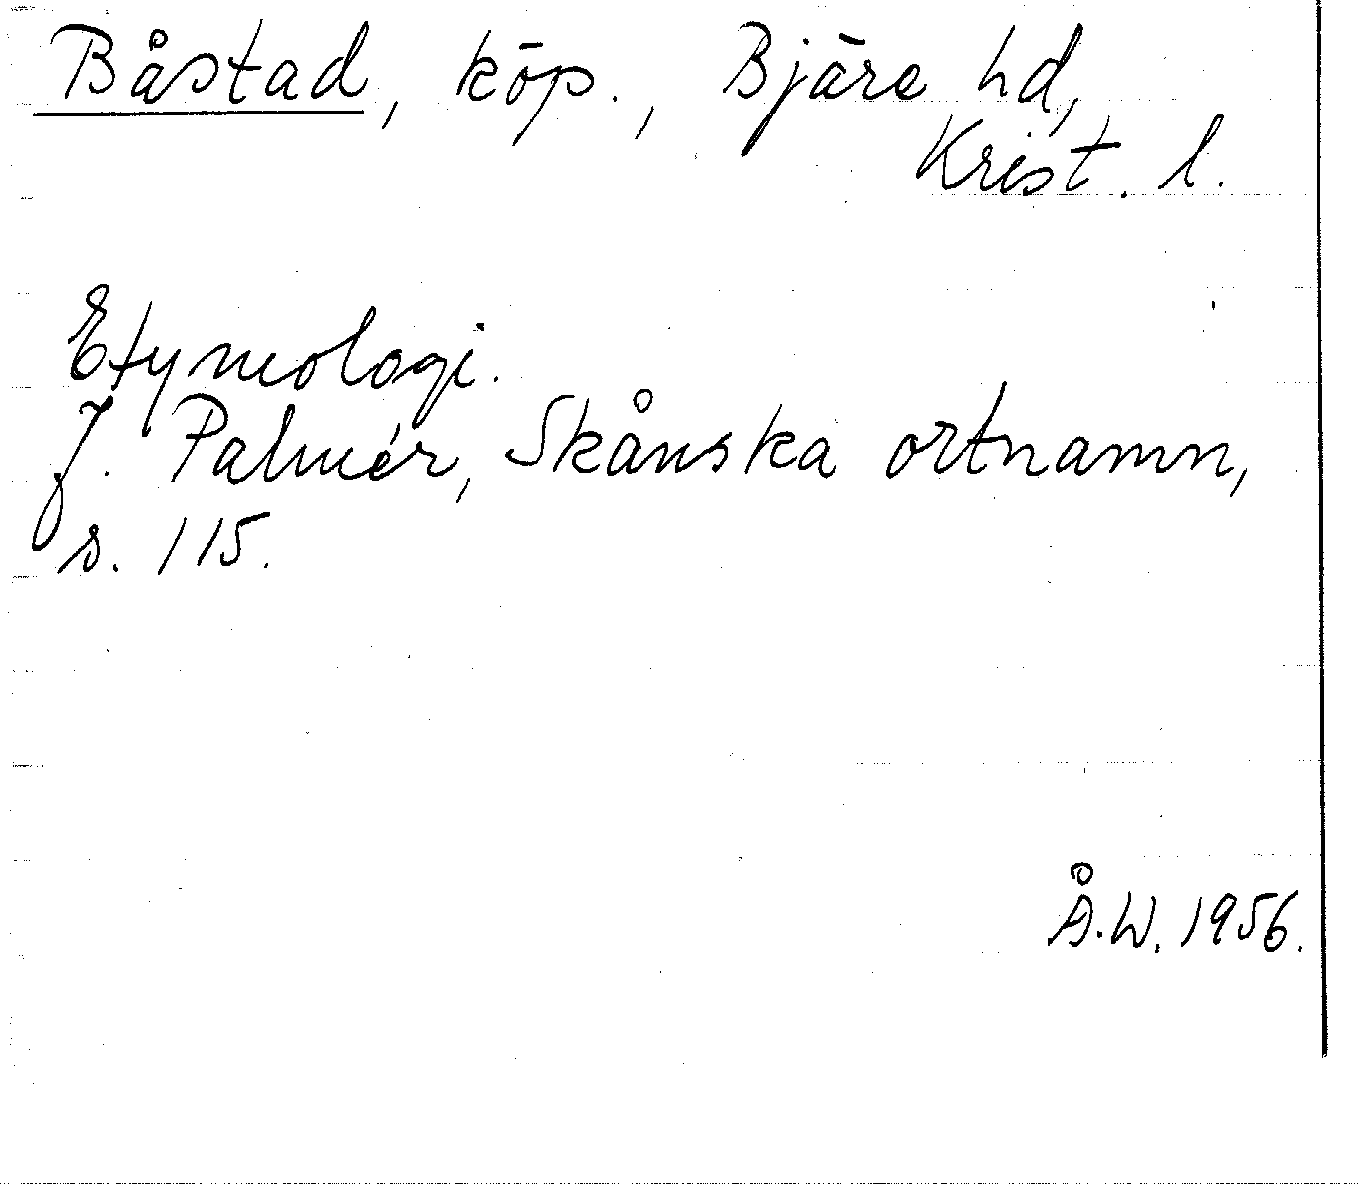 Båstad, köp., Bjäre hd,
Krist. l.
Etymologi.
J. Palmér, Skånska ortnamn,
s. 115.
Å.W. 1956.